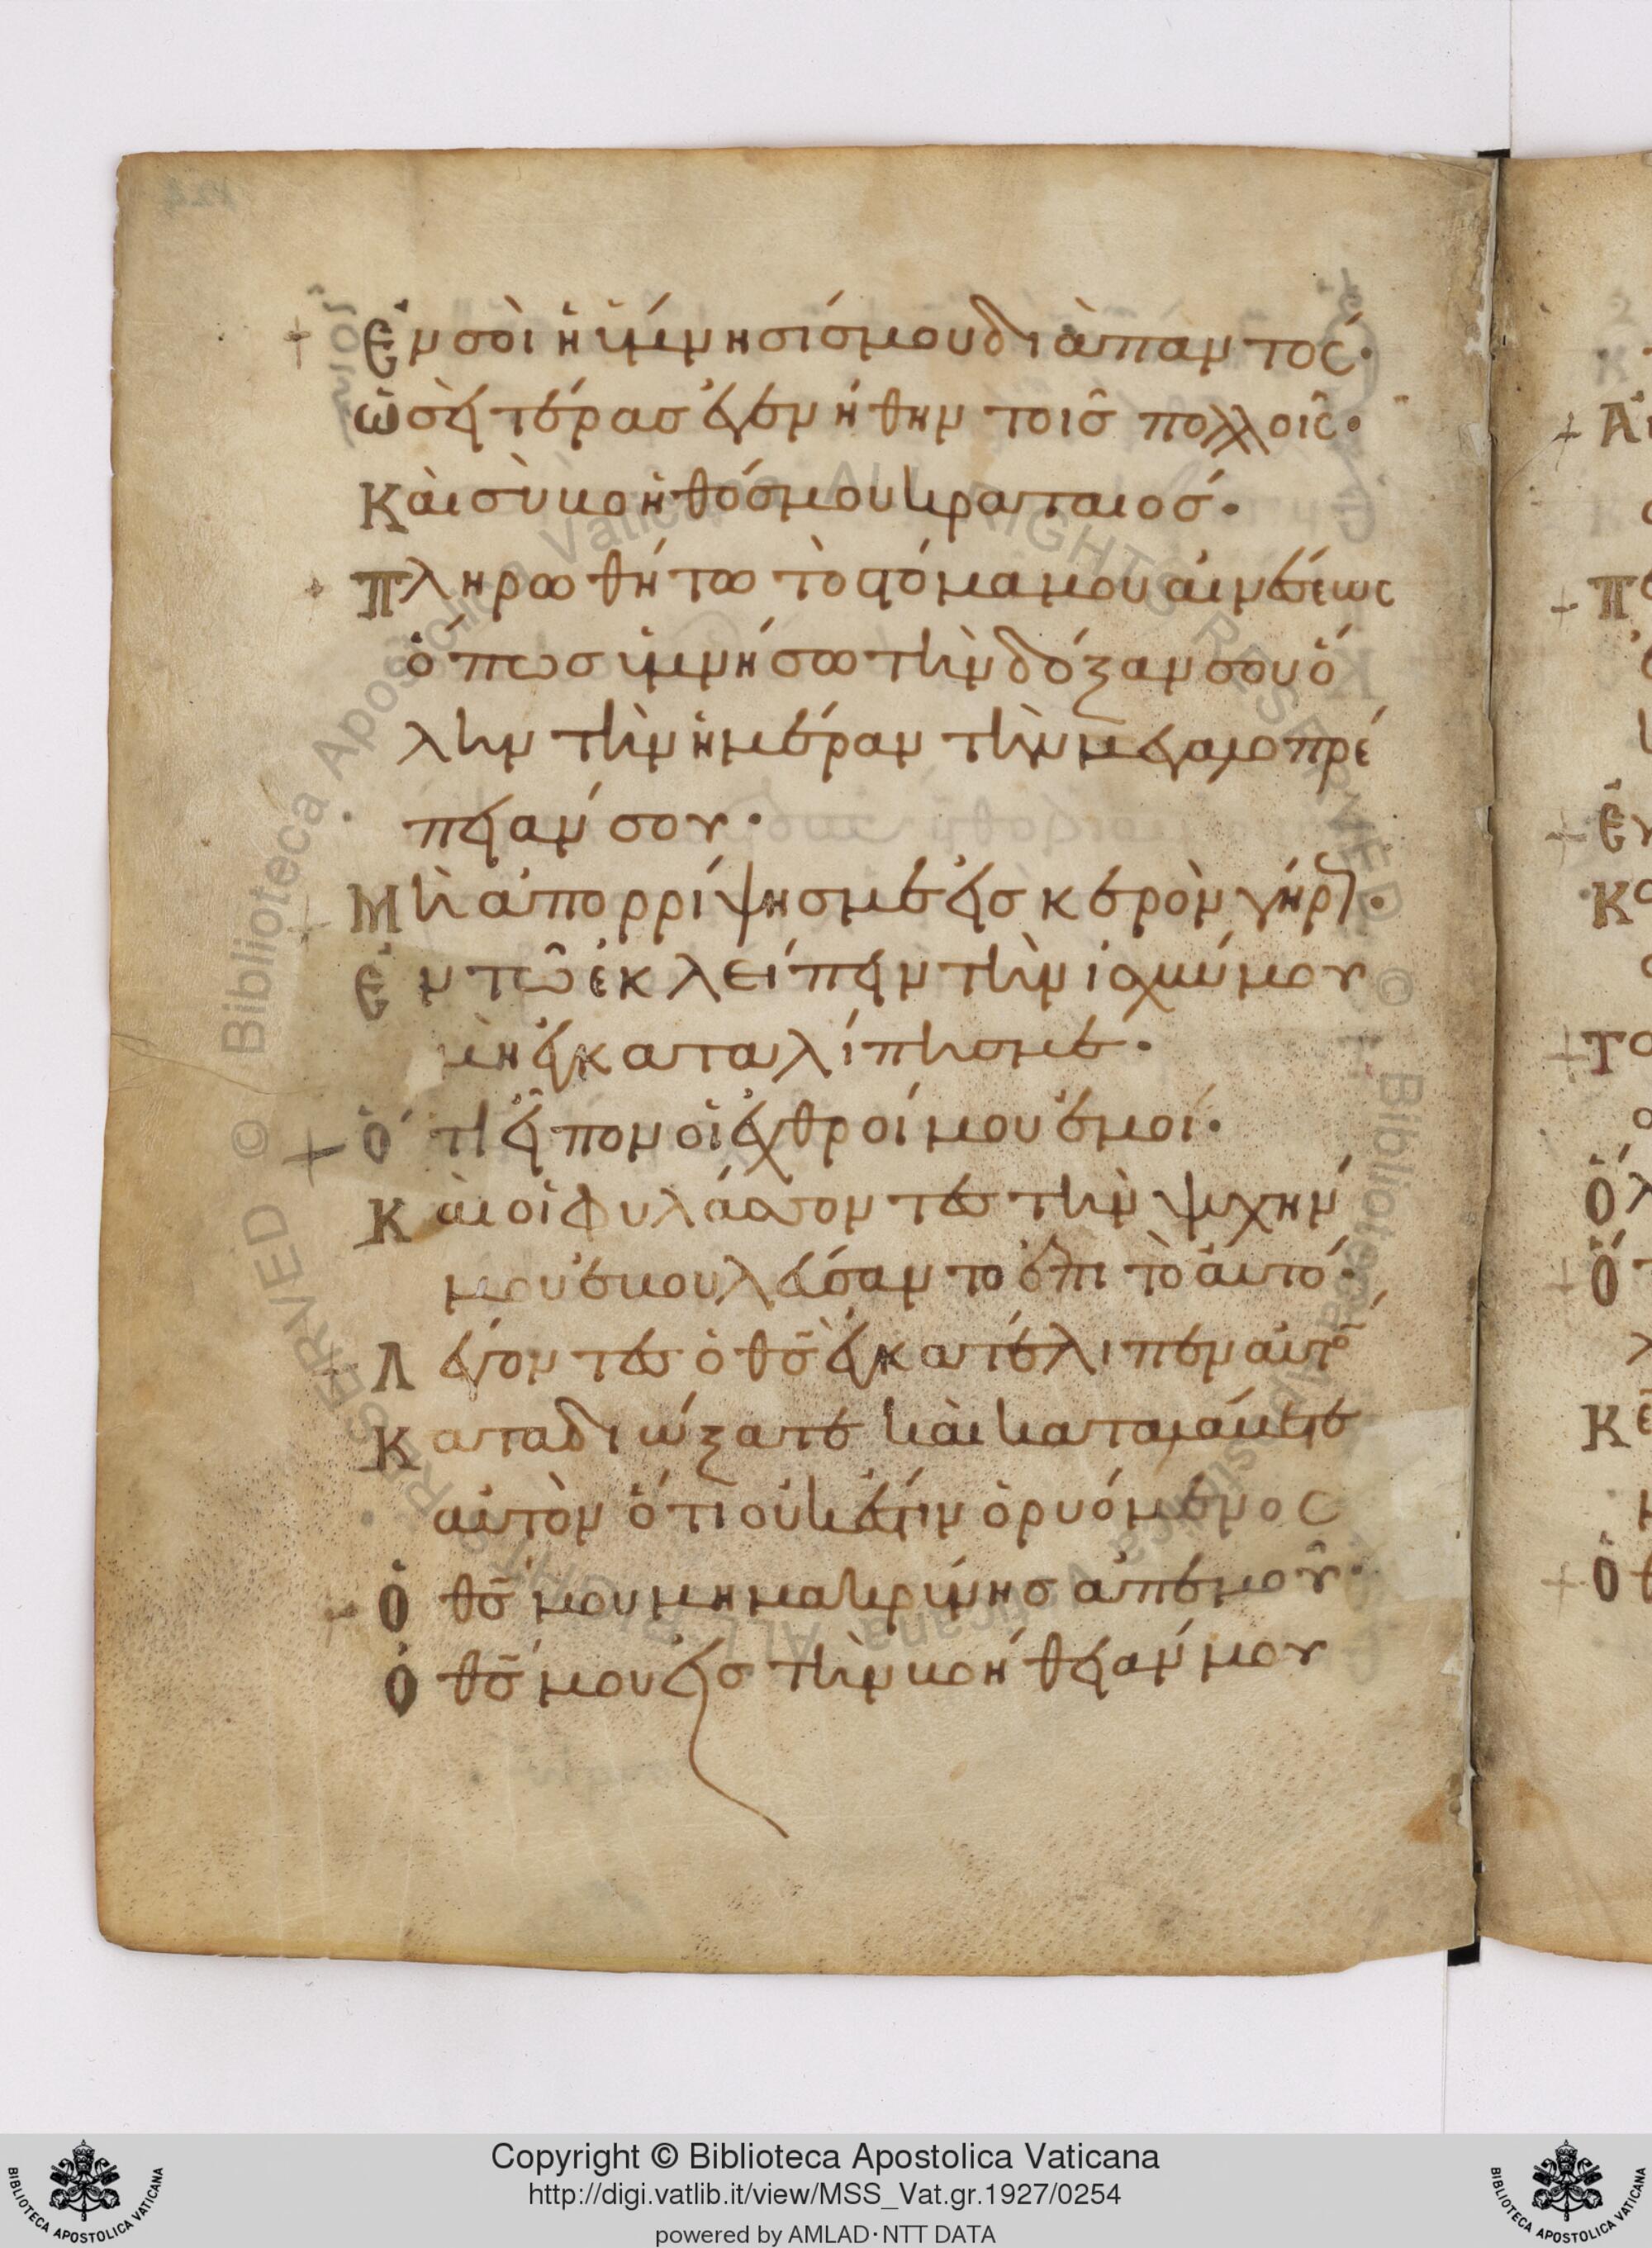 Ἐν σοὶ ἡ ὕμνησίσ μου διὰπαντός·
ὡσεὶ τέρασ ἐγενήθην τοῖσ πολλοῖς·
Καὶ σὺ βοηθόσ μου κραταιόσ·
Πληρωθήτω τὸ στόμα μου αἰνέσεως
ὅπωσ ὑμνήσω τὴν δόξαν σου ὅ
λην τὴν ἡμέραν τὴν μεγαλοπρέ
πειάν σου·
Μὴ ἀπορρίψησ με εἰσ κερὸν γήρ·
Ἐν τῶ ἐκλείπειν τὴν ἰσχύν μου
μὴ ἐγκαταλίπησ με·
Ὅτι εἶπον οἱ ἐχθροί μου ἐμοί·
Καὶ οἱ φυλάσσοντεσ τὴν ψυχήν
μου ἐβουλεύσαντο ἐπὶ τὸ αὐτό·
Λέγοντεσ ὁ θσ̄ ἐγκατέλιπεν αὐτὸ
Καταδιώξατε καὶ καταλάβετε
αὐτὸν ὅτι οὐκ ἔστιν ὁ ρυόμενος
Ὁ θσ̄ μου μὴ μακρύνησ ἀπ' ἐμοῦ·
Ὁ θσ̄ μου εἰσ τὴν βοήθειάν μου
Copyright © Biblioteca Apostolica Vaticana
http://digi.vatlib.it/view/MSS_Vat.gr.1927/0254
powered by AMLAD·NTT DATA
BIBLIOTECA APOSTOLICA VATICANA
BIBLIOTECA APOSTOLICA VATICANA